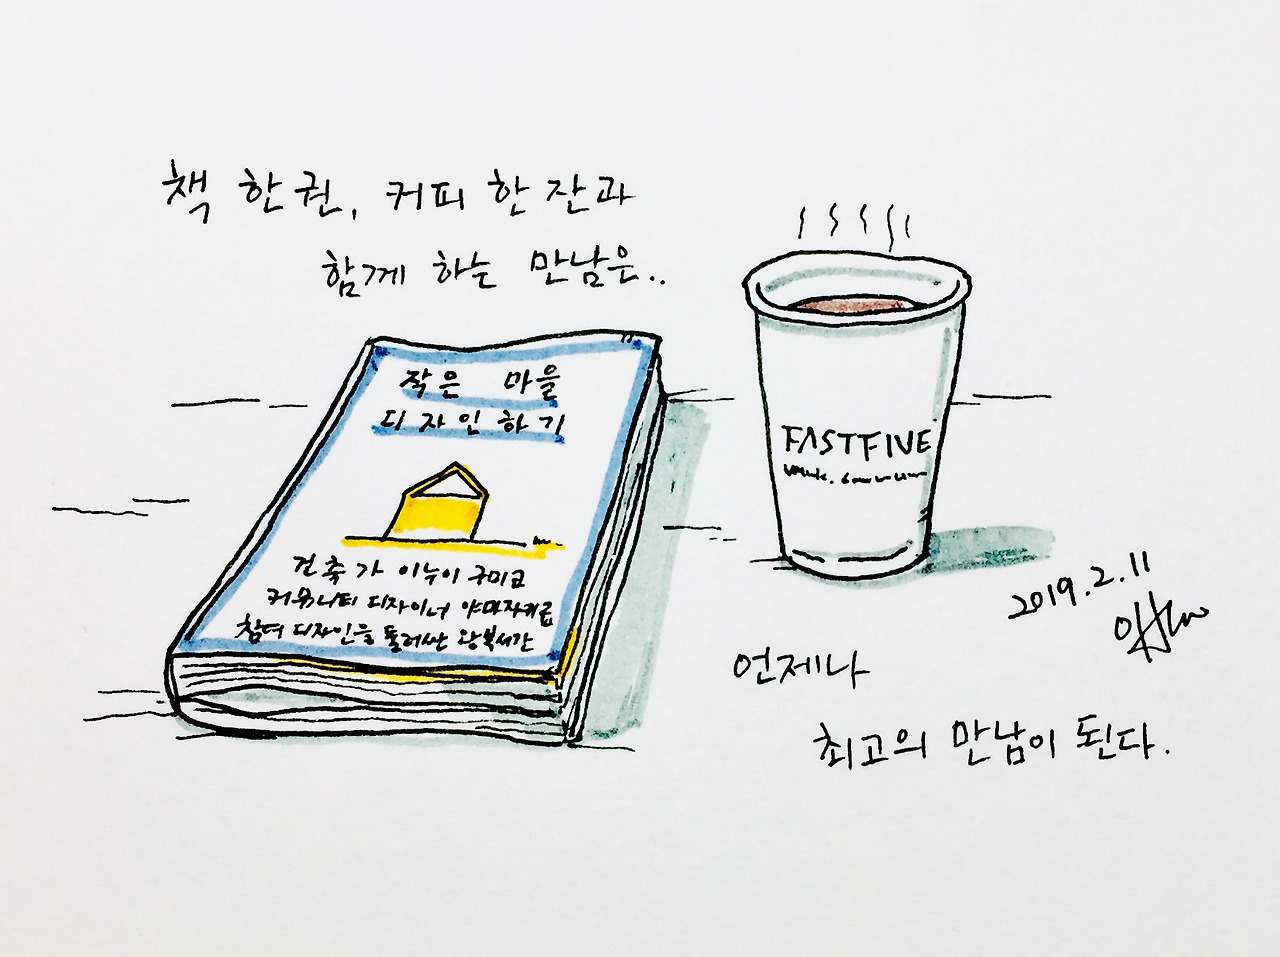 책 한권, 커피 한 잔과
함께 하는 만남은..
작은 마을
디자인하기
건축가 이누이 구미코
커뮤니티 디자이너 야마자키 료
참여 디자인을 둘러싼 왕복서간
FASTFIVE
2019.2.11
언제나
최고의 만남이 된다.